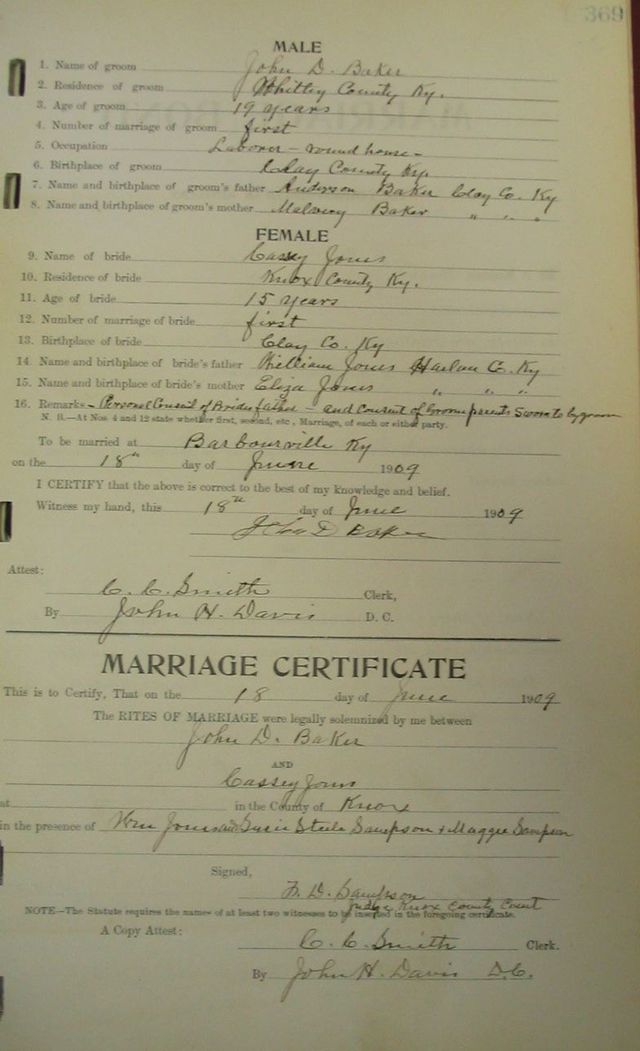 369
MALE
1. Name of groom John D. Baker
2. Residence of groom Whitley County Ky.
3. Age of groom 19 years
4. Number of marriage of groom first
5. Occupation Laborer - round house -
6. Birthplace of groom Clay County Ky.
7. Name and birthplace of groom's father Anderson Baker Clay Co. Ky
8. Name and birthplace of groom's mother Baker " " "
FEMALE
9. Name of bride Cassey Jones
10. Residence of bride Knox County Ky.
11. Age of bride 15 years
12. Number of marriage of bride first
13. Birthplace of bride Clay Co. Ky
14. Name and birthplace of bride's father William Jones Harlan Co. Ky
15. Name and birthplace of bride's mother Eliza Jones " " "
16. Remarks - Personal Consent of Brides father - and consent of Groom parents sworn to by groom
N. B.—At Nos. 4 and 12 state whether first, second, etc., Marriage, of each or either party.
To be married at Barbourville Ky
on the 18th day of June 1909
I CERTIFY that the above is correct to the best of my knowledge and belief.
Witness my hand, this 18th day of June 1909
John D Baker
Attest:
C. C. Smith Clerk,
By John H. Davis D. C.
MARRIAGE CERTIFICATE
This is to Certify, That on the 18 day of June 1909
The RITES OF MARRIAGE were legally solemnized by me between
John D. Baker
AND
Cassey Jones
at in the County of Knox
in the presence of Wm Jones and Susie Steele Sampson & Maggie Sampson
Signed,
F. D. Sampson
Judge Knox County Court
NOTE—The Statute requires the names of at least two witnesses to be inserted in the foregoing certificate.
A Copy Attest:
C. C. Smith Clerk.
By John H. Davis D.C.